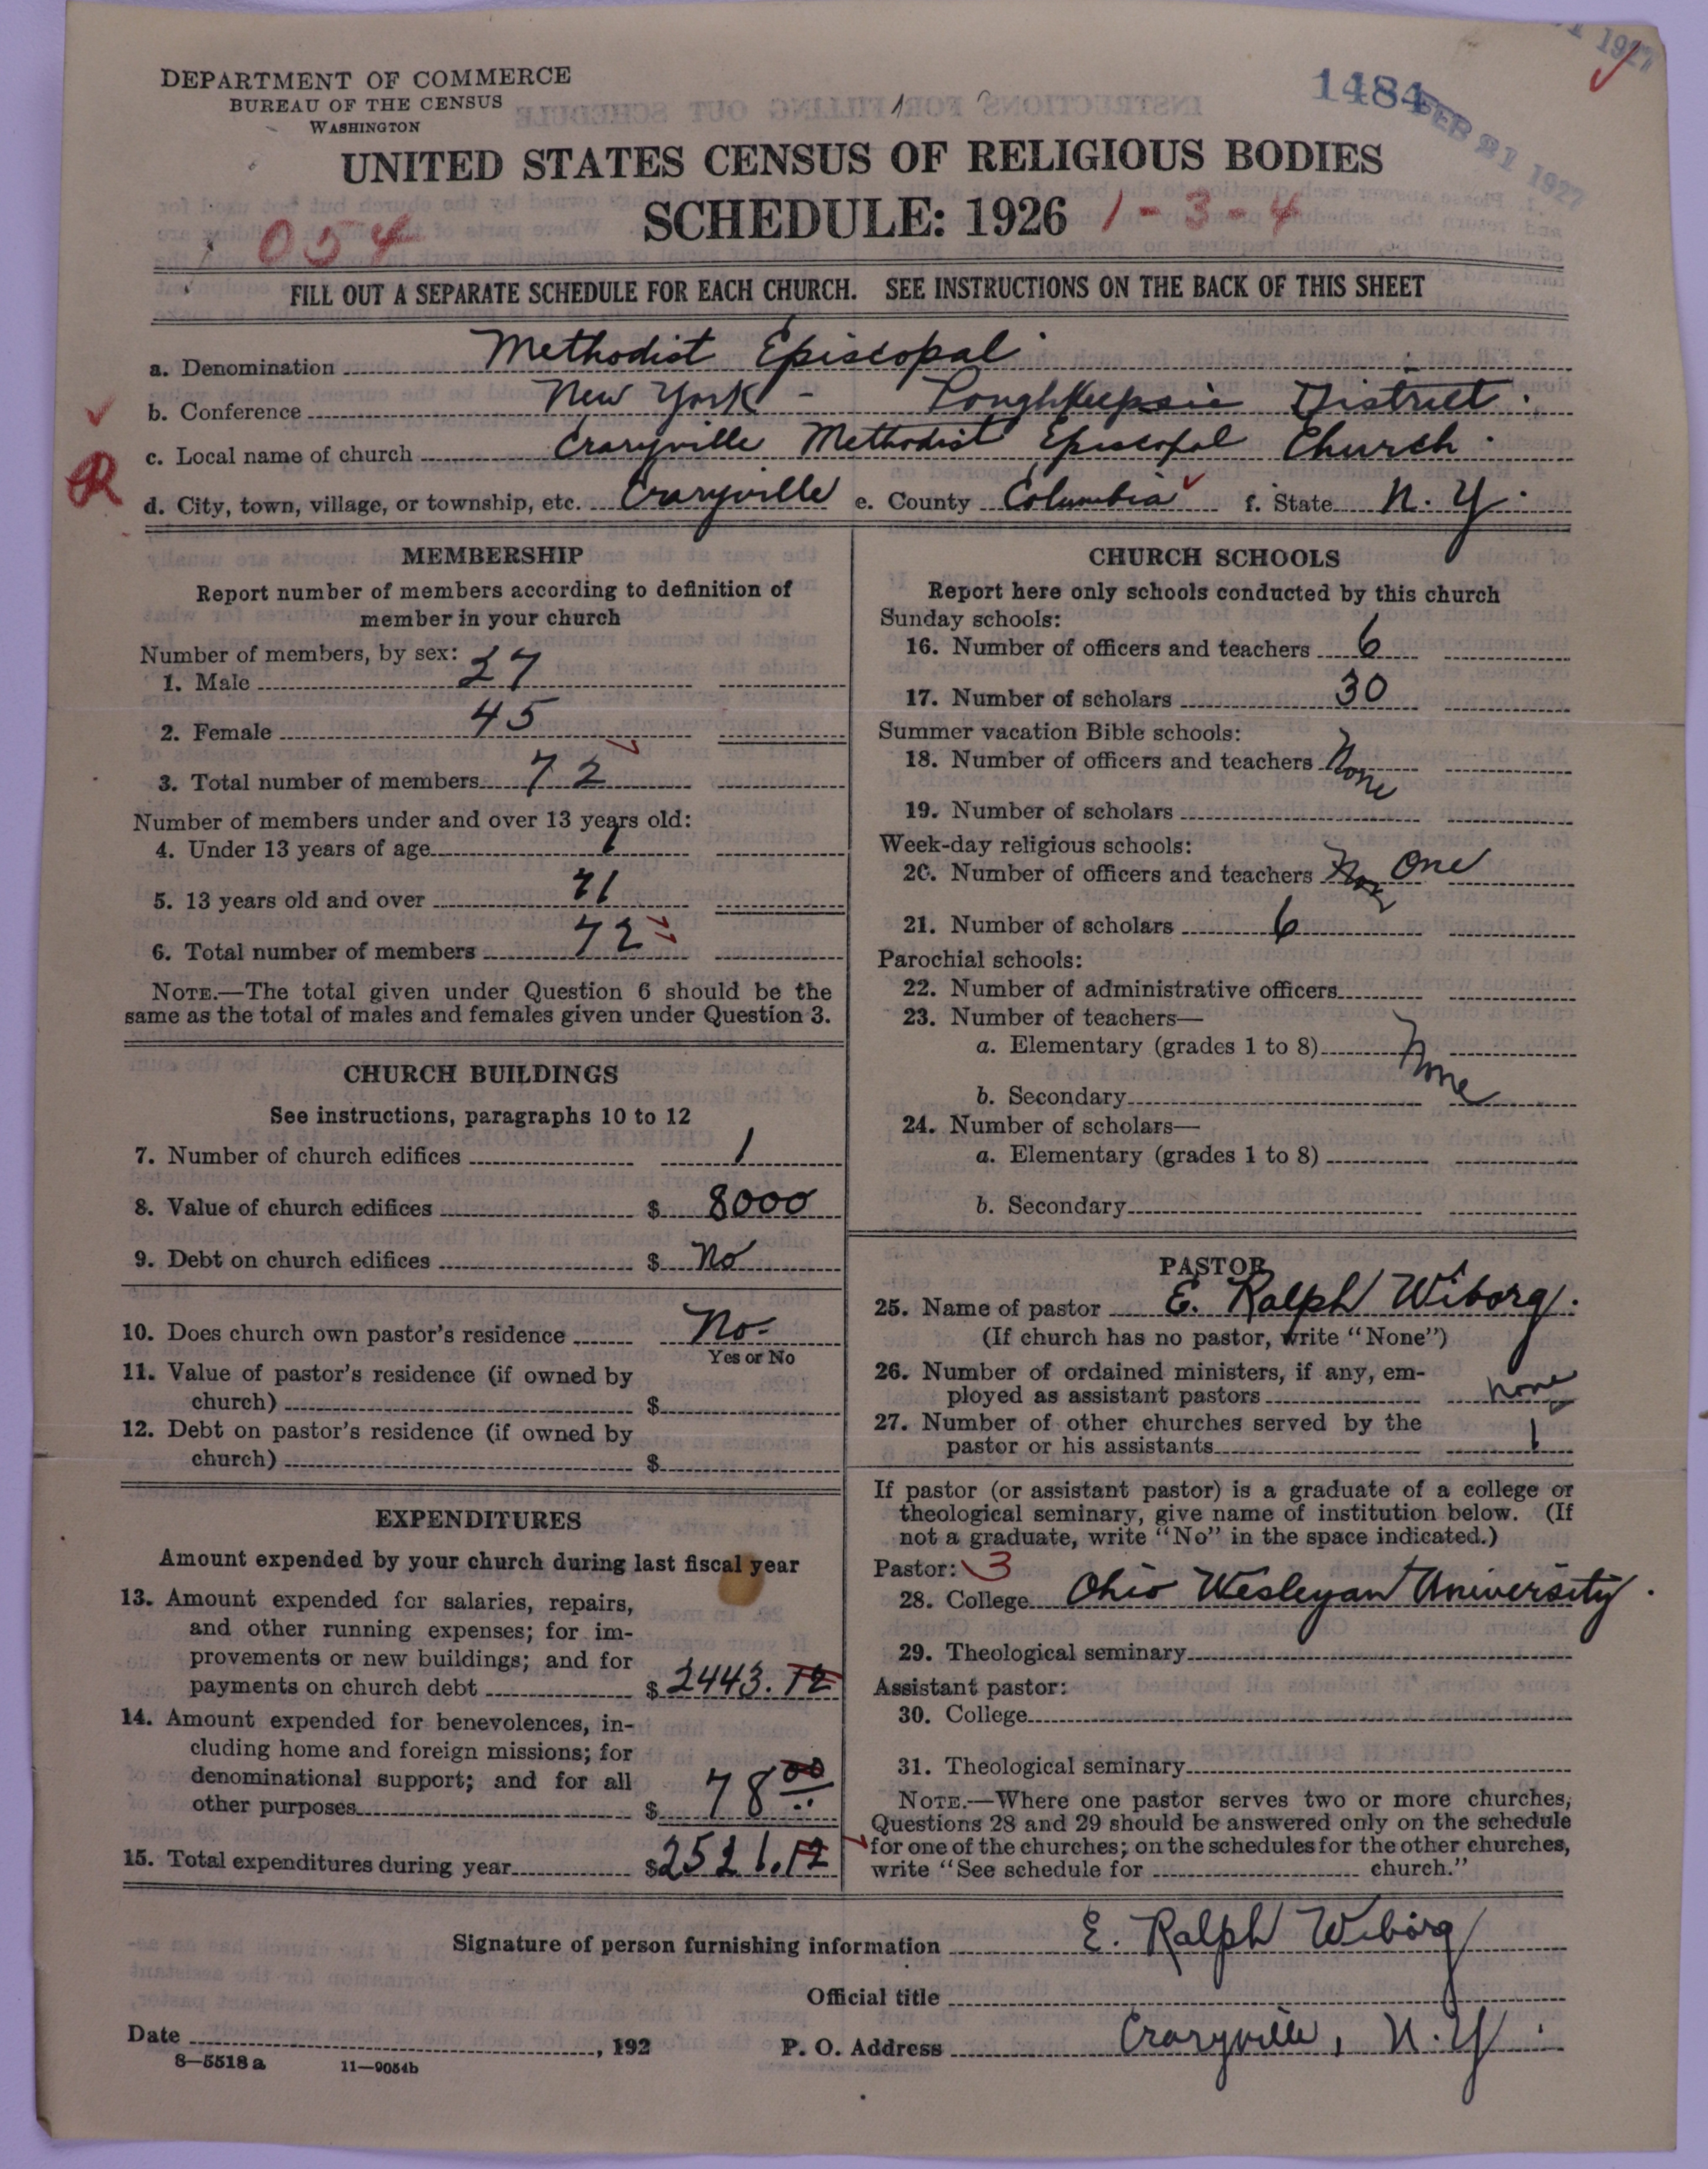 DEPARTMENT OF COMMERCE
BUREAU OF THE CENSUS
WASHINGTON
1484
FEB 21 1927
1927
UNITED STATES CENSUS OF RELIGIOUS BODIES
SCHEDULE: 1926 1-3-4
054
FILL OUT A SEPARATE SCHEDULE FOR EACH CHURCH. SEE INSTRUCTIONS ON THE BACK OF THIS SHEET
a. Denomination Methodist Episcopal
b. Conference New York - Poughkeepsie District.
c. Local name of church Craryville Methodist Episcopal Church.
R
d. City, town, village, or township, etc. Craryville e. County Columbia f. State N. Y.
MEMBERSHIP
Report number of members according to definition of
member in your church
Number of members, by sex:
1. Male 27
2. Female 45
3. Total number of members 72
Number of members under and over 13 years old:
4. Under 13 years of age 1
5. 13 years old and over 71
6. Total number of members 72
NOTE.—The total given under Question 6 should be the
same as the total of males and females given under Question 3.
CHURCH BUILDINGS
See instructions, paragraphs 10 to 12
7. Number of church edifices 1
8. Value of church edifices $ 8000
9. Debt on church edifices $ No
10. Does church own pastor's residence No-
Yes or No
11. Value of pastor's residence (if owned by
church) $
12. Debt on pastor's residence (if owned by
church) $
EXPENDITURES
Amount expended by your church during last fiscal year
13. Amount expended for salaries, repairs,
and other running expenses; for im-
provements or new buildings; and for
payments on church debt $ 2443.12
14. Amount expended for benevolences, in-
cluding home and foreign missions; for
denominational support; and for all
other purposes $ 78 00
15. Total expenditures during year $2521.12
CHURCH SCHOOLS
Report here only schools conducted by this church
Sunday schools:
16. Number of officers and teachers 6
17. Number of scholars 30
Summer vacation Bible schools:
18. Number of officers and teachers None
19. Number of scholars
Week-day religious schools:
20. Number of officers and teachers None One
21. Number of scholars 6
Parochial schools:
22. Number of administrative officers
23. Number of teachers—
a. Elementary (grades 1 to 8) None
b. Secondary
24. Number of scholars—
a. Elementary (grades 1 to 8)
b. Secondary
PASTOR
25. Name of pastor E. Ralph Wiborg.
(If church has no pastor, write "None")
26. Number of ordained ministers, if any, em-
ployed as assistant pastors none
27. Number of other churches served by the
pastor or his assistants 1
If pastor (or assistant pastor) is a graduate of a college or
theological seminary, give name of institution below. (If
not a graduate, write "No" in the space indicated.)
Pastor: 3
28. College Ohio Wesleyan University.
29. Theological seminary
Assistant pastor:
30. College
31. Theological seminary
NOTE.—Where one pastor serves two or more churches,
Questions 28 and 29 should be answered only on the schedule
for one of the churches; on the schedules for the other churches,
write "See schedule for church."
Signature of person furnishing information E. Ralph Wiborg
Official title
Date , 192
P. O. Address Craryville, N.Y.
8—5518 a 11—9054b